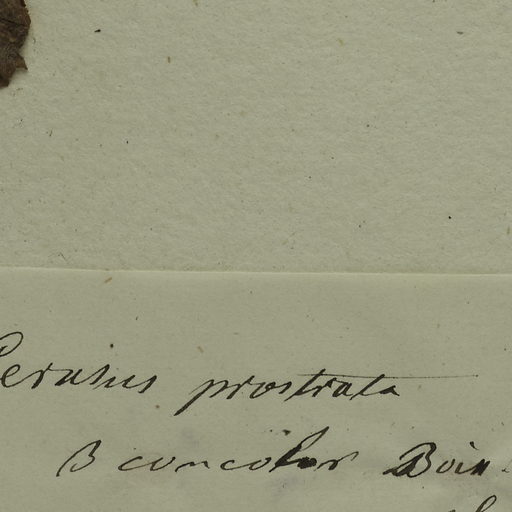 Cerasus prostrata
β concolor Boiss.